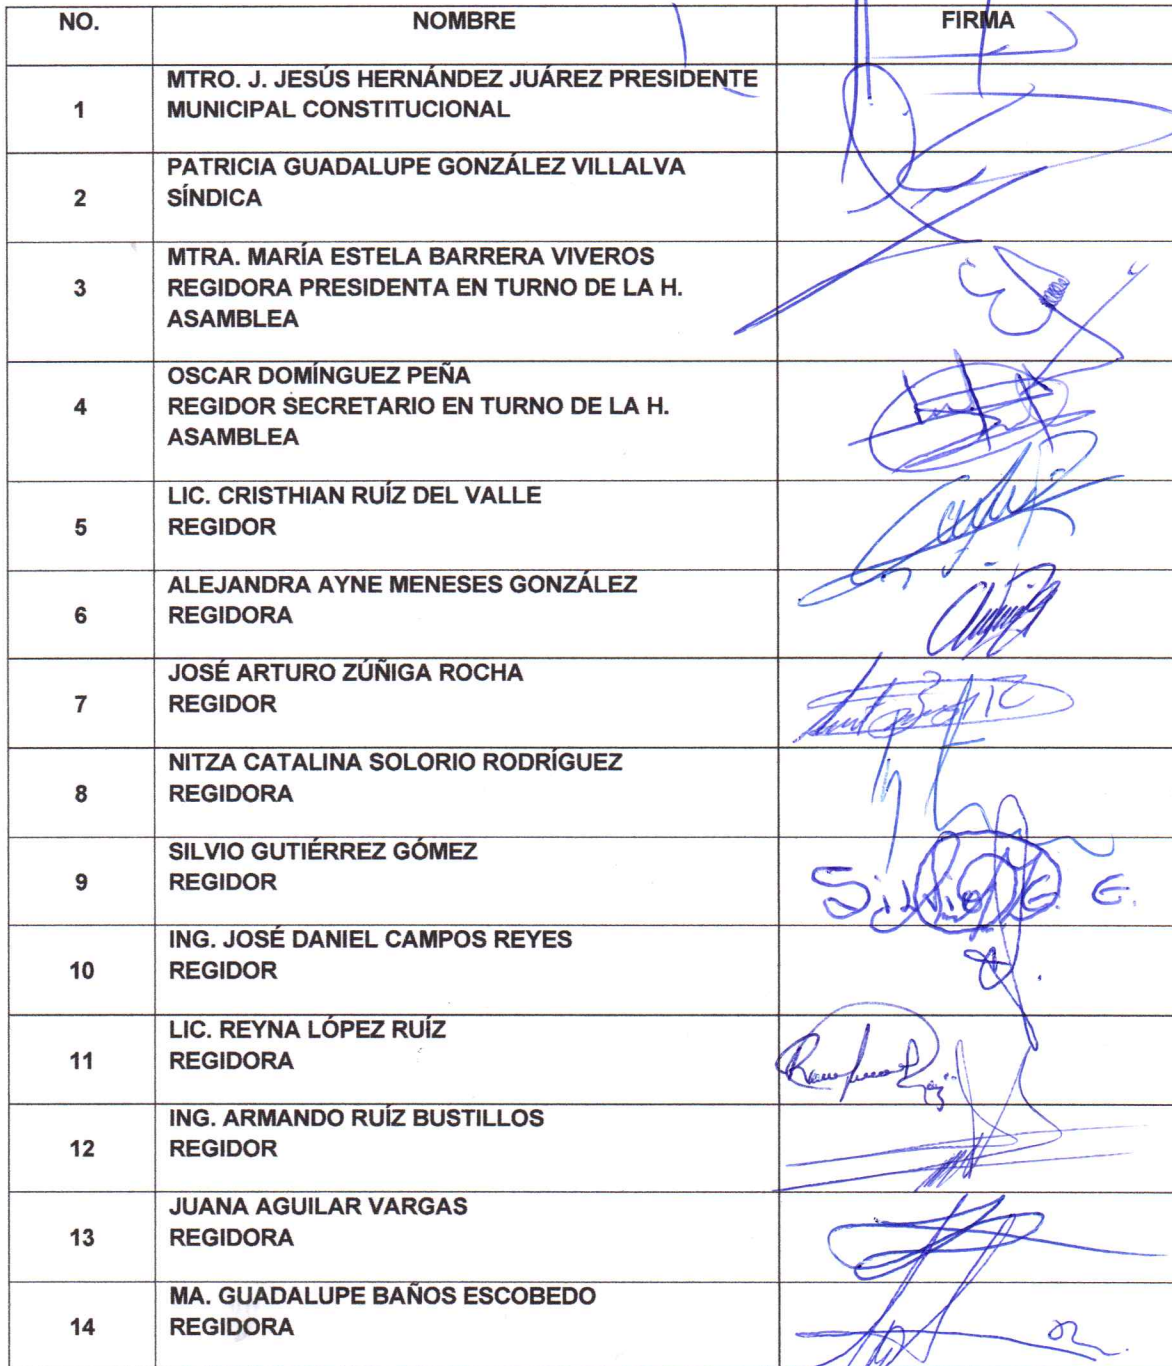 NO. NOMBRE FIRMA
1 MTRO. J. JESÚS HERNÁNDEZ JUÁREZ PRESIDENTE
MUNICIPAL CONSTITUCIONAL
2 PATRICIA GUADALUPE GONZÁLEZ VILLALVA
SÍNDICA
3 MTRA. MARÍA ESTELA BARRERA VIVEROS
REGIDORA PRESIDENTA EN TURNO DE LA H.
ASAMBLEA
4 OSCAR DOMÍNGUEZ PEÑA
REGIDOR SECRETARIO EN TURNO DE LA H.
ASAMBLEA
5 LIC. CRISTHIAN RUÍZ DEL VALLE
REGIDOR
6 ALEJANDRA AYNE MENESES GONZÁLEZ
REGIDORA
7 JOSÉ ARTURO ZÚÑIGA ROCHA
REGIDOR
8 NITZA CATALINA SOLORIO RODRÍGUEZ
REGIDORA
9 SILVIO GUTIÉRREZ GÓMEZ
REGIDOR
Silvio G. G.
10 ING. JOSÉ DANIEL CAMPOS REYES
REGIDOR
11 LIC. REYNA LÓPEZ RUÍZ
REGIDORA
12 ING. ARMANDO RUÍZ BUSTILLOS
REGIDOR
13 JUANA AGUILAR VARGAS
REGIDORA
14 MA. GUADALUPE BAÑOS ESCOBEDO
REGIDORA